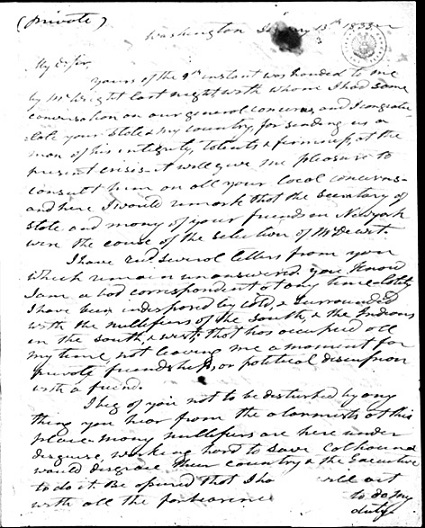 (private)
Washington Jany 13th 1833
My D'r Sir,
yours of the 9th instant was handed to me
by Mr Wright last night with whom I had some
conversation on our general concerns, and I congratu-
late your State & my country, for sending us a
man of his integrity, talents & firmness, at the
present crisis. it will give me pleasure to
consult him on all your local concerns—
and here I would remark that the Secratary of
State and many of your friends in Newyork
were the cause of the selection of Mr Dewit.
I have recd several letters from you
which remain unanswered. you know
I am a bad correspondent at any time lately
I have been indisposed by cold, & surrounded
with the nullifiers of the South, & the Indians
in the south, & west, that has occupied all
my time, not leaving me a moment for
private friendship, or political discussion
with a friend.
I beg of you not to be disturbed by any
thing you hear from the alarmists at this
place. many nullifiers are here under
disguise, working hard to save Calhoun &
would disgrace their country & the Executive
to do it. Be assured that I ha ill act
with all the forbearance to do my
duty